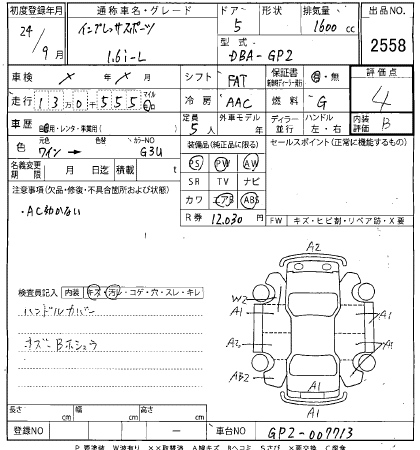 初度登録年月 通称車名・グレード ドア 形状 排気量 出品NO.
24/9月 インプレッサスポーツ 1.6i-L 5 1600cc 2558
型式 DBA-GP2
車検 × 年 × 月 シフト FAT 保証書 有・無 評価点
走行 13万0千555 マイル km 冷房 AAC 燃料 G 4
車歴 自家用・レンタ・事業用( ) 定員 5人 外車モデル ディーラー 並行 ハンドル 左・右 内装評価 B
色 元色 ワイン 色替 カラーNO G3U 装備品(純正品に限る) セールスポイント(正常に機能するもの)
名義変更期限 月 日迄 積載 PS PW AW
注意事項(欠品・修復・不具合箇所および状態) SR TV ナビ
・AC効かない カワ エアB ABS
R券 12,030円 FW キズ・ヒビ割・リペア跡・X要
A2
検査員記入 内装 キズ・汚レ・コゲ・穴・スレ・キレ W2
ハンドルカバー A1 A1
オズーBホシュウ A2 A1
AB2 A1
A1
長さ cm 幅 cm 高さ cm
登録NO - 車台NO GP2-007713
P 要塗装 W波有り ××取替済 A線キズ Bヘコミ Sサビ ×要交換 C腐食